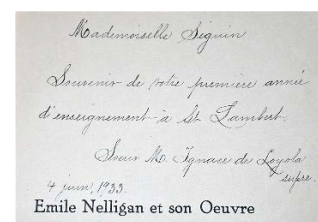 Mademoiselle Séguin
Souvenir de votre première année
d'enseignement à St Lambert.
Sœur M. Ignace de Loyola
supre.
4 juin, 1933.
Emile Nelligan et son Oeuvre